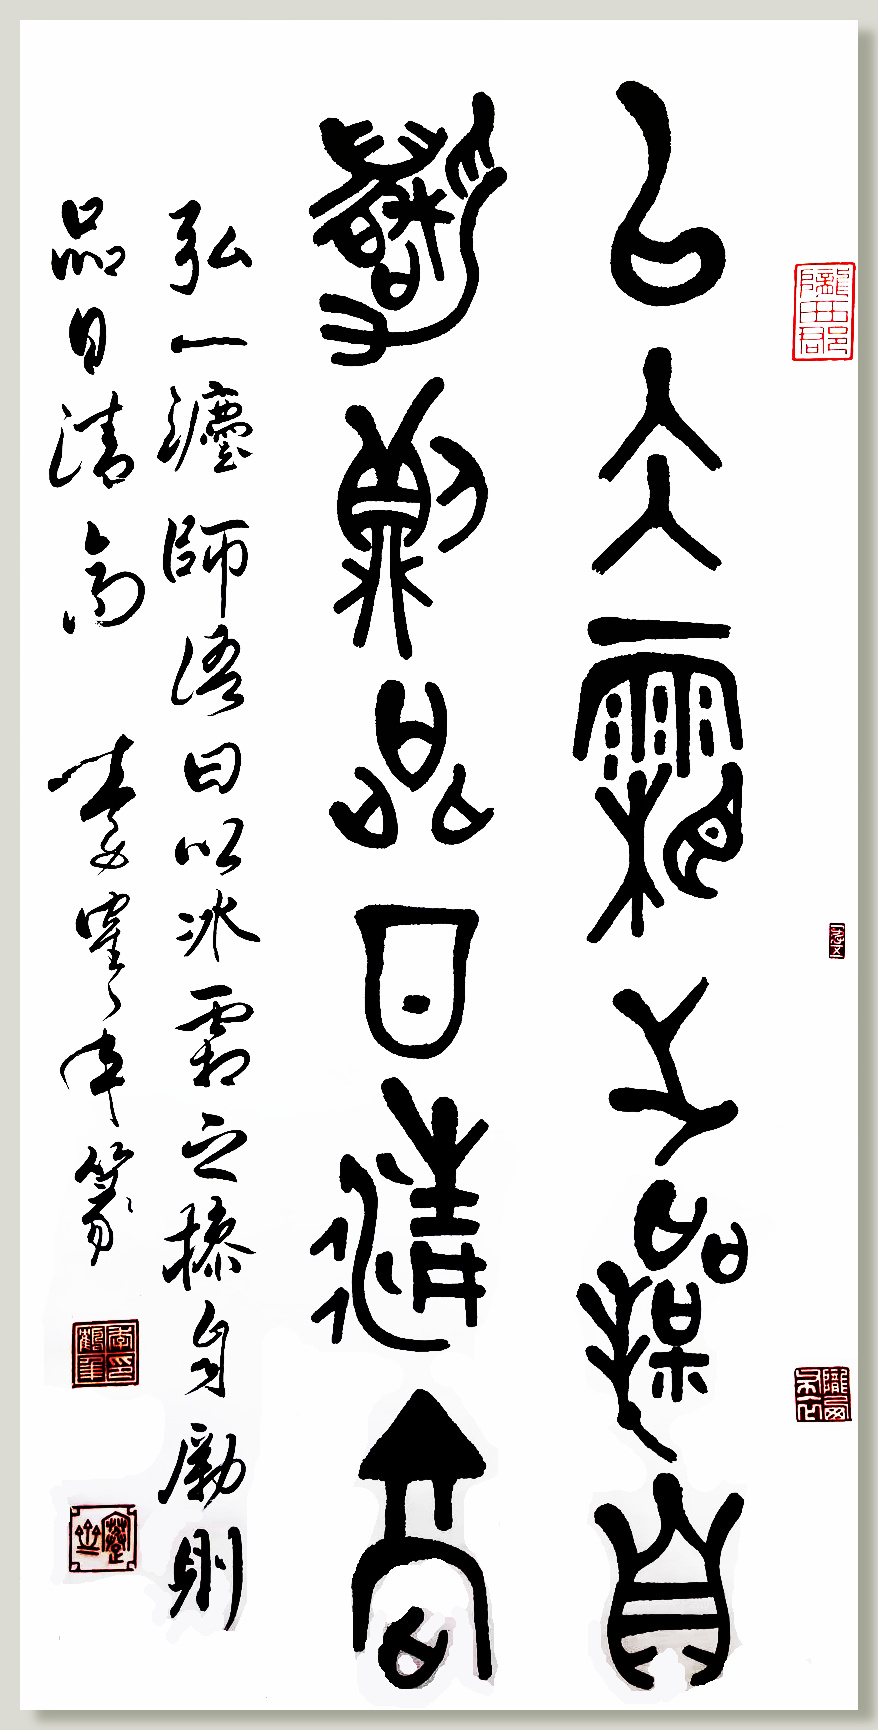 隴西郡
以冰霜之操自
勵則品日清高
弘一灋師語曰以冰霜之操自勵則
品日清高 李寉年篆